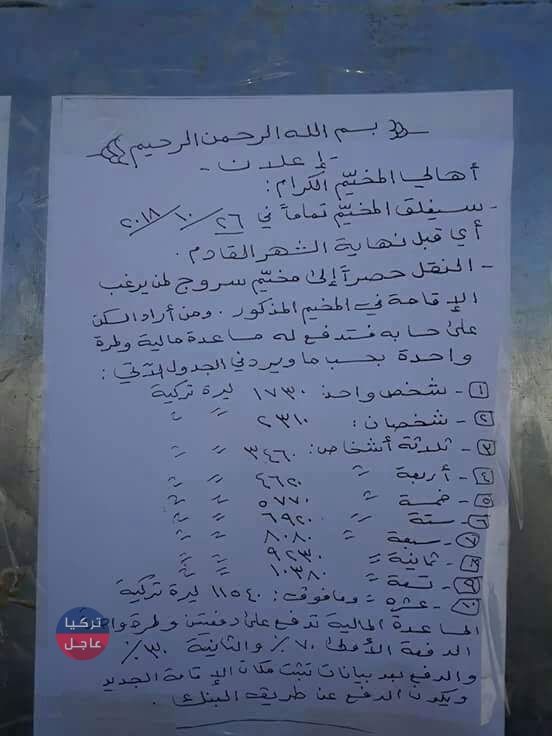 بسم الله الرحمن الرحيم
- إعلان -
أهالي المخيّم الكرام:
- سيغلق المخيّم تماماً في ٢٦/١٠/٢٠١٨
أي قبل نهاية الشهر القادم.
- النقل حصراً إلى مخيّم سروج لمن يرغب
الإقامة في المخيم المذكور. ومن أراد السكن
على حسابه فستدفع له مساعدة مالية ولمرة
واحدة بحسب ما ويرد في الجدول الآتي:
١- شخص واحد: ١٧٣٠ ليرة تركية
٢- شخصان: ٢٣١٠ " "
٣- ثلاثة أشخاص: ٣٤٦٠ " "
٤- أربعة " ٤٦٢٠ " "
٥- خمسة " ٥٧٧٠ " "
٦- ستة " ٦٩٢٠ " "
٧- سبعة " ٨٠٨٠ " "
٨- ثمانية " ٩٢٣٠ " "
٩- تسعة " ١٠٣٨٠ " "
١٠- عشرة " وما فوق: ١١٥٤٠ ليرة تركية
المساعدة المالية تدفع على دفعتين ولمرة
الدفعة الأولى ٧٠٪ والثانية ٣٠٪
والدفع بعد بيانات تثبت مكان الإقامة الجديد
ويكون الدفع عن طريق البنك.
تركيا
عاجل